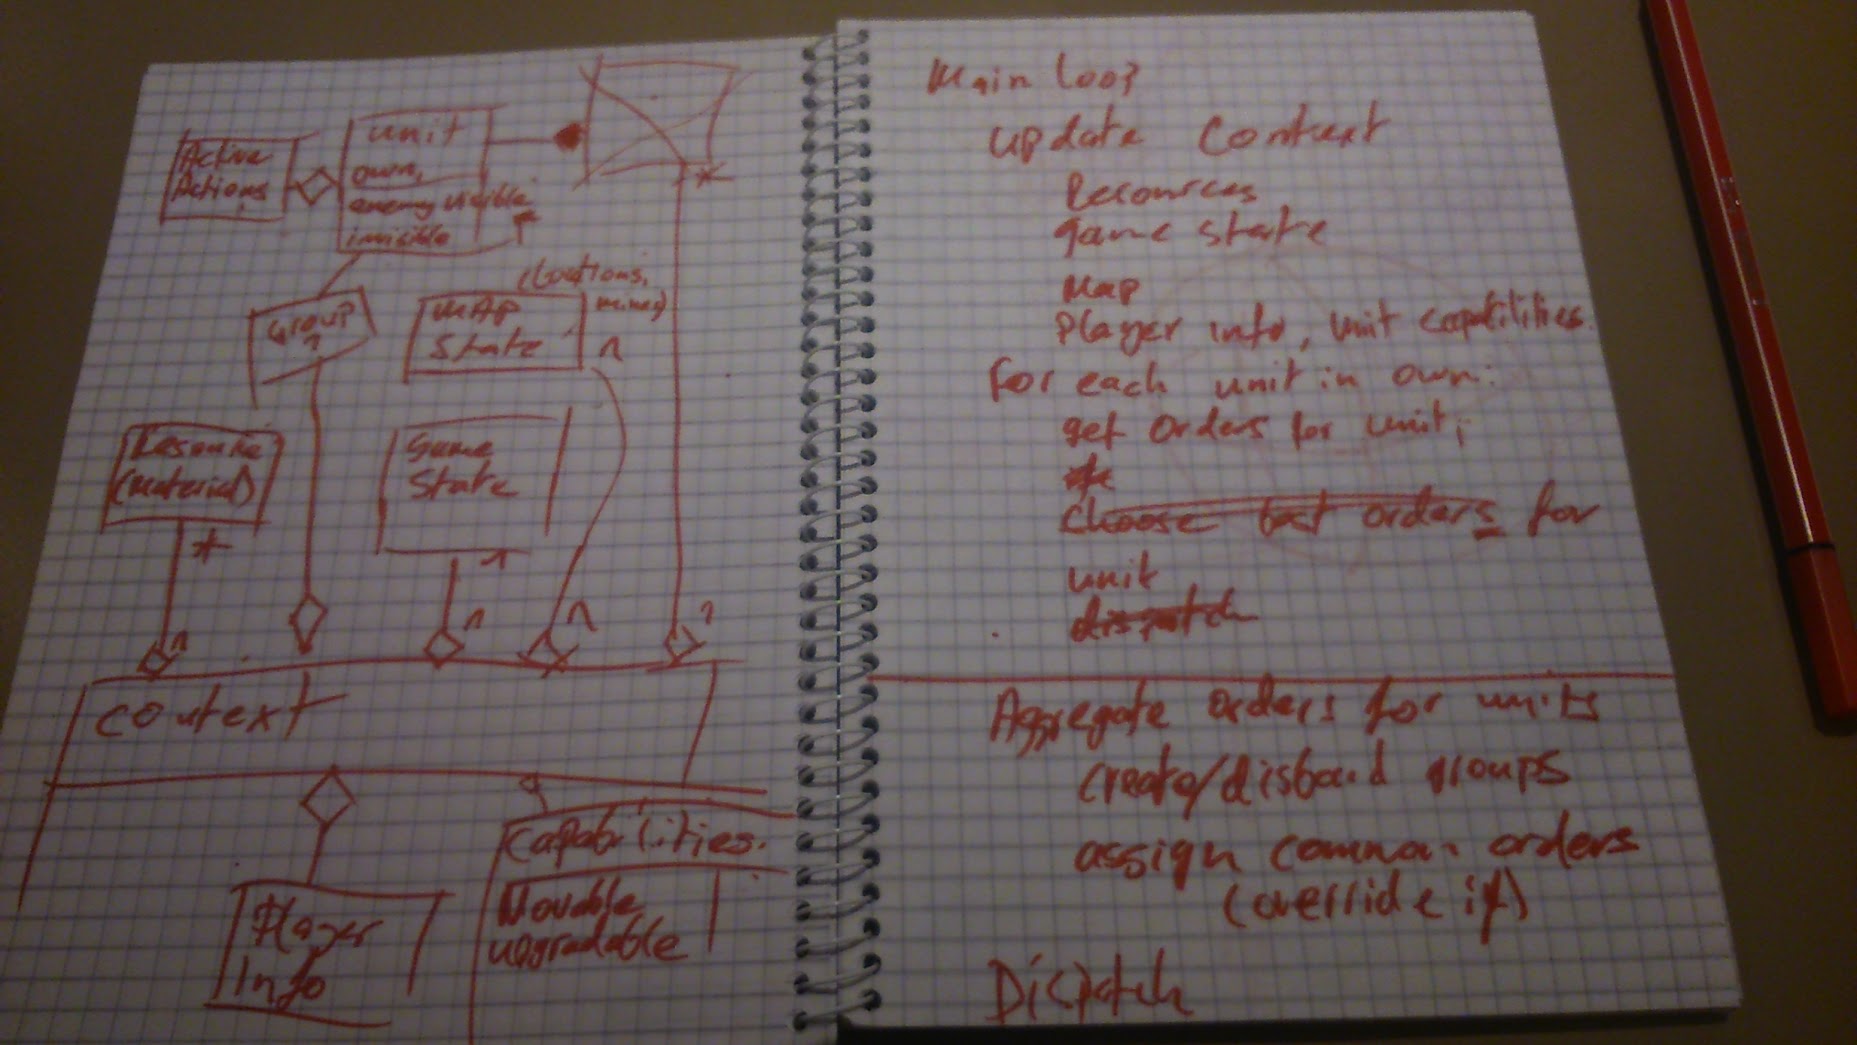 Active
Actions
unit
own,
enemy visible
invisible
*
Group
1
MAP
State
(Locations,
mines)
1
Resource
(Material)
*
Game
State
1
1
1
1
1
context
Player
Info
Capabilities.
Movable
upgradable
Main loop
update context
Resources
game state
Map
Player info, unit capabilities.
For each unit in own:
get orders for unit;
choose best orders for
unit
dispatch
Aggregate orders for units
create/disband groups
assign common orders
(override it)
Dispatch